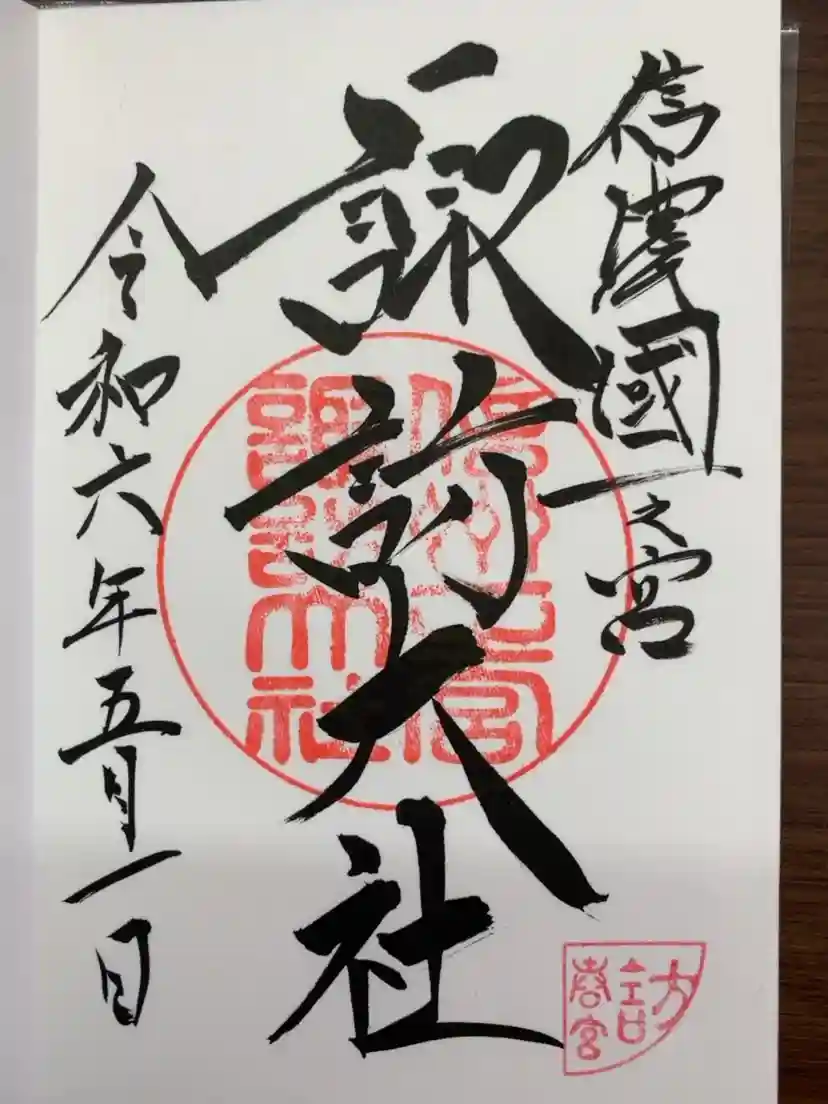 信濃國一之宮
諏訪大社
令和六年五月一日
信州一宮
諏訪大社
諏訪
春宮